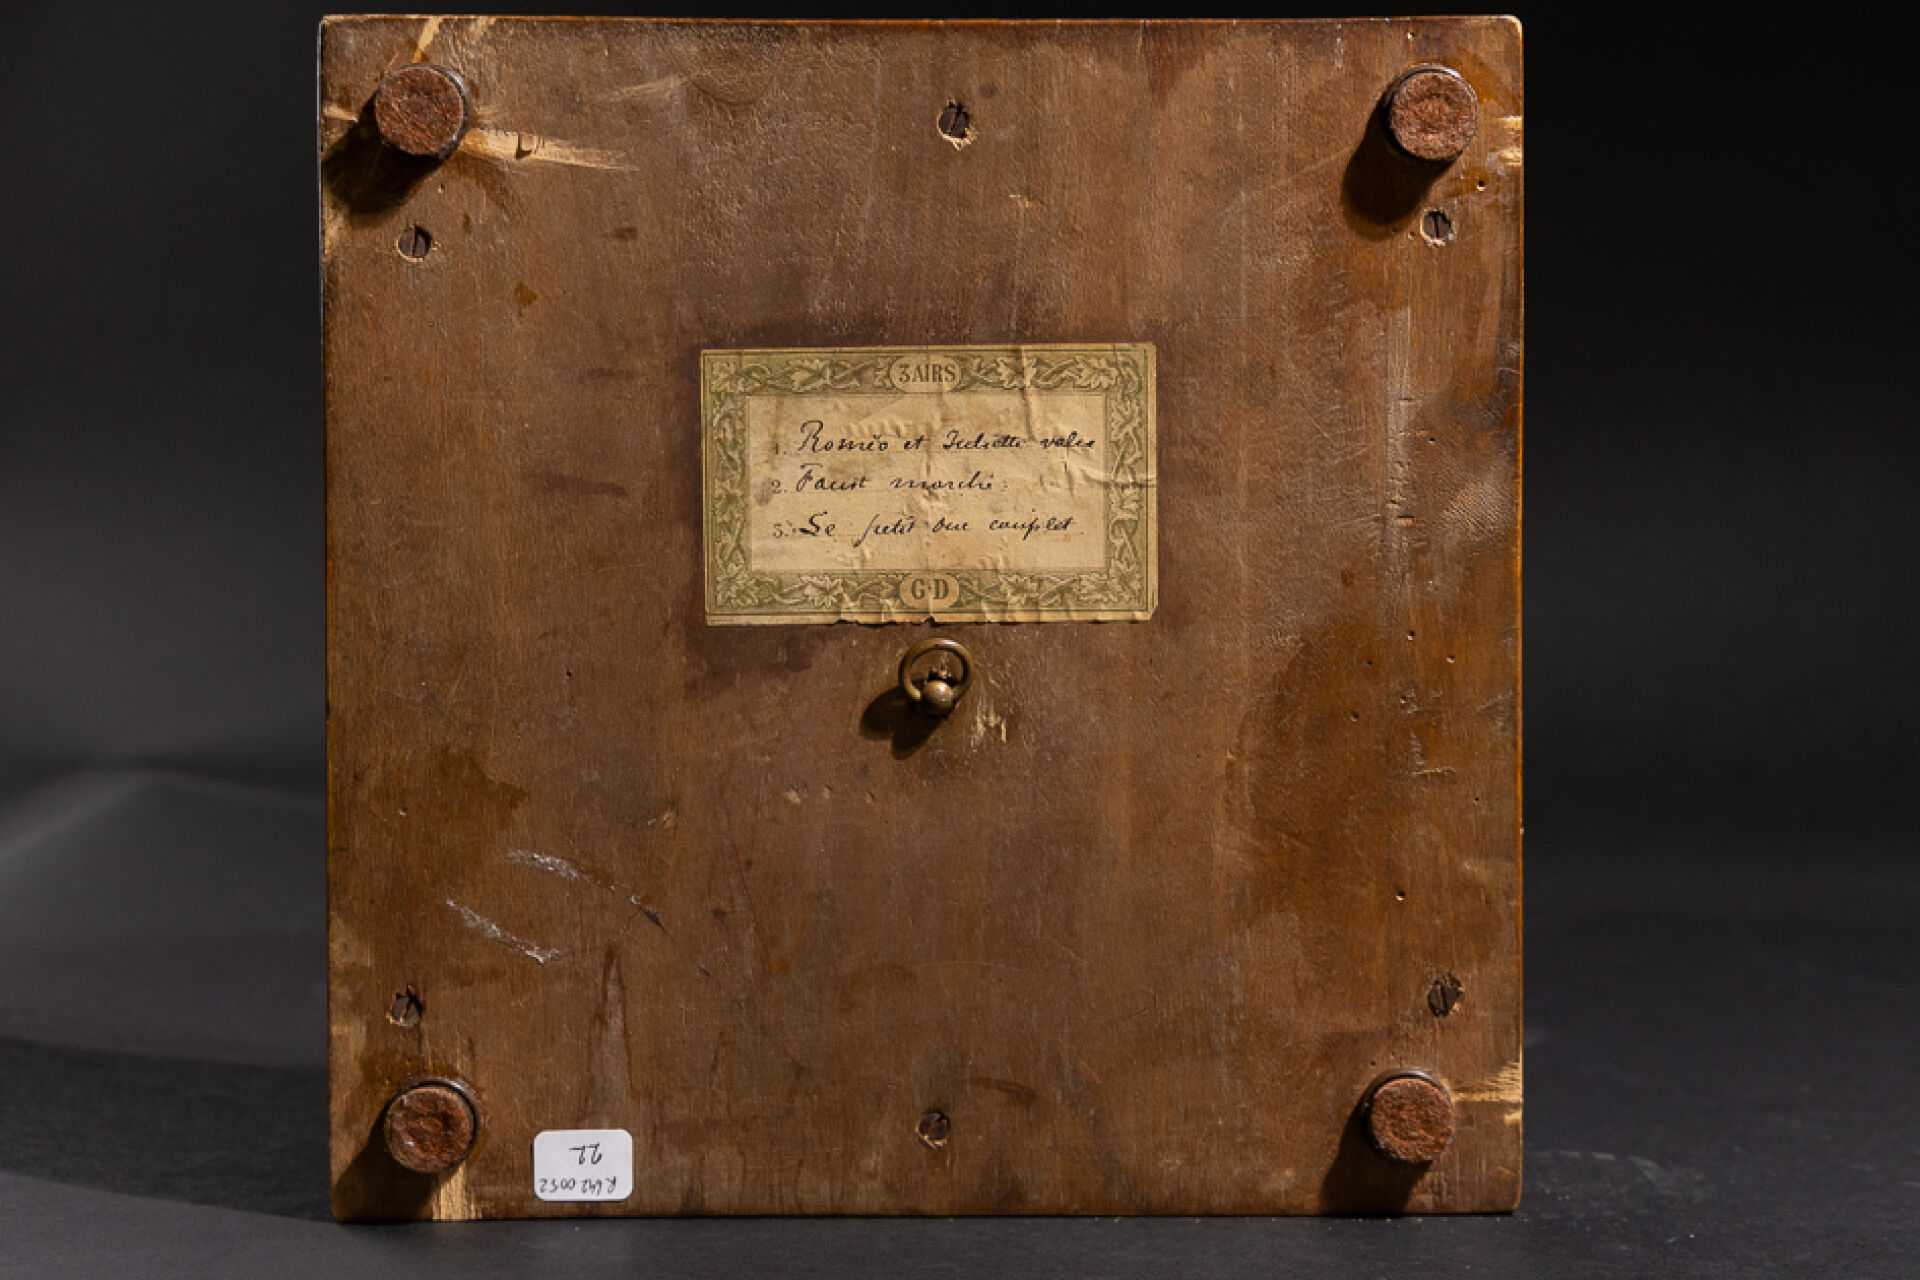 3 AIRS
1. Roméo et Juliette valse
2. Faust marche
3. Le petit duc couplet.
G·D
R 642 0052
22